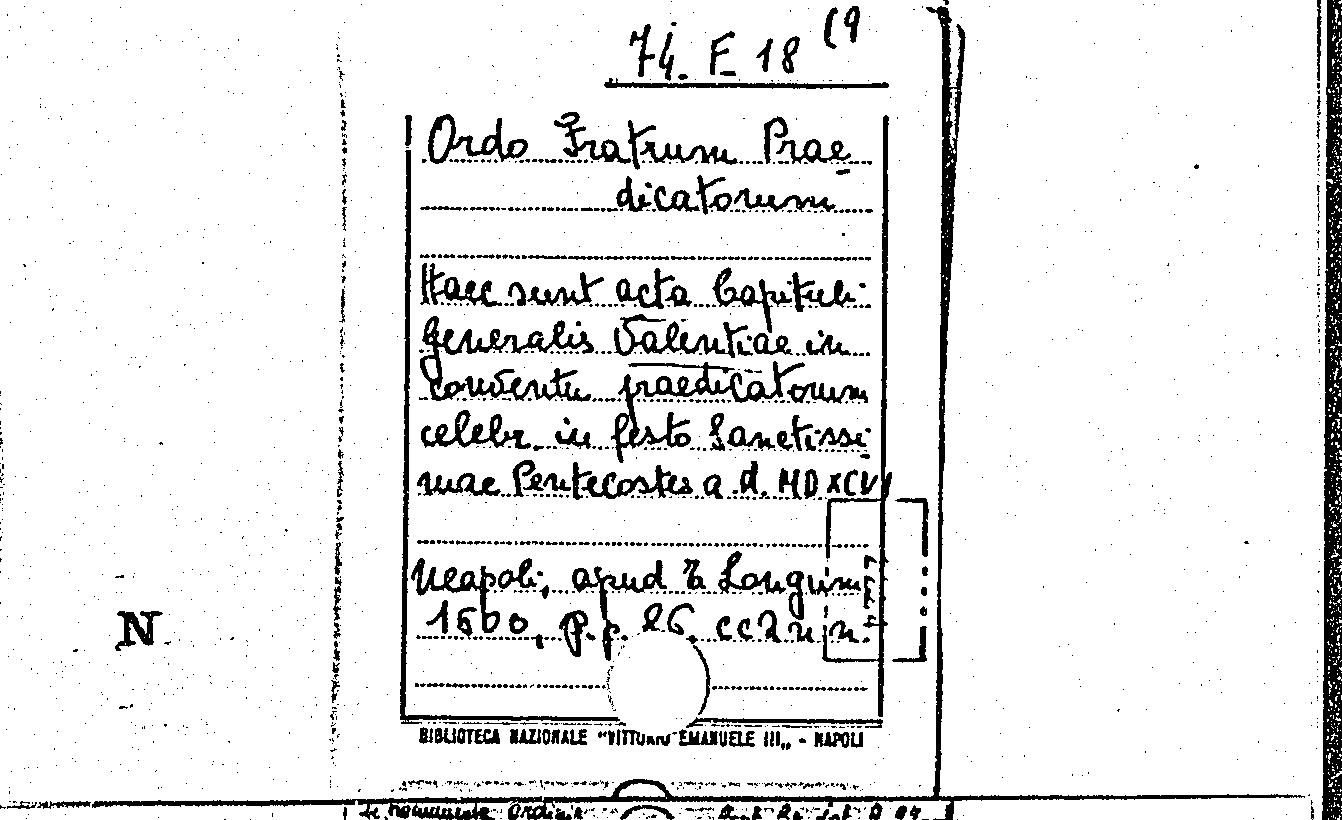 74. F 18 (9
Ordo Fratrum Prae
dicatorum
Haec sunt acta Capituli
generalis Valentiae in
conventu praedicatorum
celebr. in festo Sanctissi
mae Pentecostes a d. MDXCVI
Neapoli, apud Longum
1600, p.p. 86. cc 2 n n.
BIBLIOTECA NAZIONALE "VITTORIO EMANUELE III„ - NAPOLI
N